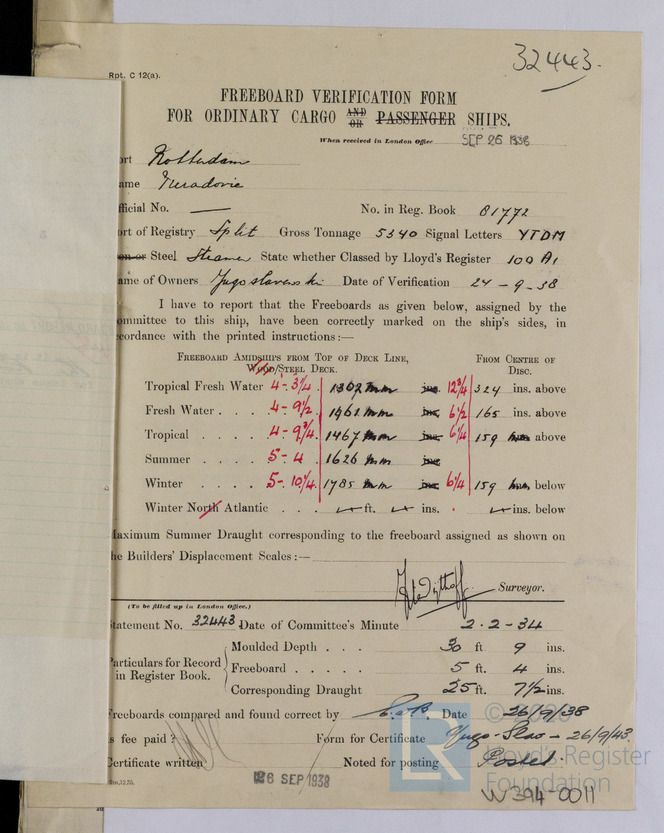 32443.
Rpt. C 12(a).
FREEBOARD VERIFICATION FORM
FOR ORDINARY CARGO AND OR PASSENGER SHIPS.
When received in London Office SEP 26 1938
ort Rotterdam
ame
fficial No. — No. in Reg. Book 81772
ort of Registry Split Gross Tonnage 5340 Signal Letters YTDM
on or Steel Steamer State whether Classed by Lloyd's Register 100 A1
ame of Owners Jugoslavenski Date of Verification 24-9-38
I have to report that the Freeboards as given below, assigned by the
ommittee to this ship, have been correctly marked on the ship's sides, in
ccordance with the printed instructions:—
FREEBOARD AMIDSHIPS FROM TOP OF DECK LINE, FROM CENTRE OF
WOOD/STEEL DECK. DISC.
Tropical Fresh Water 4-3¼ 1302 mm ins. 12¾ 324 ins. above
Fresh Water . . . 4-9½ 1462 mm ins. 6½ 165 ins. above
Tropical . . . . 4-9¾ 1467 mm ins. 6¼ 159 ins. above
Summer . . . . 5-4 1626 mm ins.
Winter . . . . 5-10¼ 1785 mm ins. 6¼ 159 ins. below
Winter North Atlantic . . . ft. ins. ins. below
Maximum Summer Draught corresponding to the freeboard assigned as shown on
he Builders' Displacement Scales:—
Surveyor.
(To be filled up in London Office.)
tatement No. 32443 Date of Committee's Minute 2-2-34
Particulars for Record in Register Book.
Moulded Depth . . . 30 ft 9 ins.
Freeboard . . . . . 5 ft. 4 ins.
Corresponding Draught 25 ft. 7½ ins.
Freeboards compared and found correct by Date 26/9/38
s fee paid? Form for Certificate Yugo-Slav - 26/9/43
Certificate written Noted for posting Posted.
26 SEP 1938
© 2020
Lloyd's Register
Foundation
W394-0011